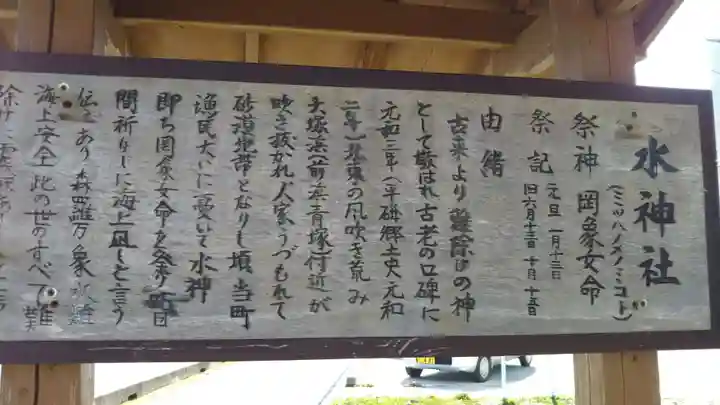 水神社
(ミツハノメノミコト)
祭神 罔象女命
祭記 元旦 一月十三日
旧六月十三日 十月十五日
由緒
古来より難除けの神
として敬はれ古老の口碑に
元和三年(平碑郷土史元和
二年)の風吹き荒み
大塚浜(前浜青塚付近)が
吹き抜かれ人家うづもれて
砂漠地帯となりし頃当町
漁民大いに憂いて水神
即ち罔象女命を祭り
間祈りしに海上凪しと言う
伝えあり森羅万象水難
海上安全此の世のすべて難
除けに